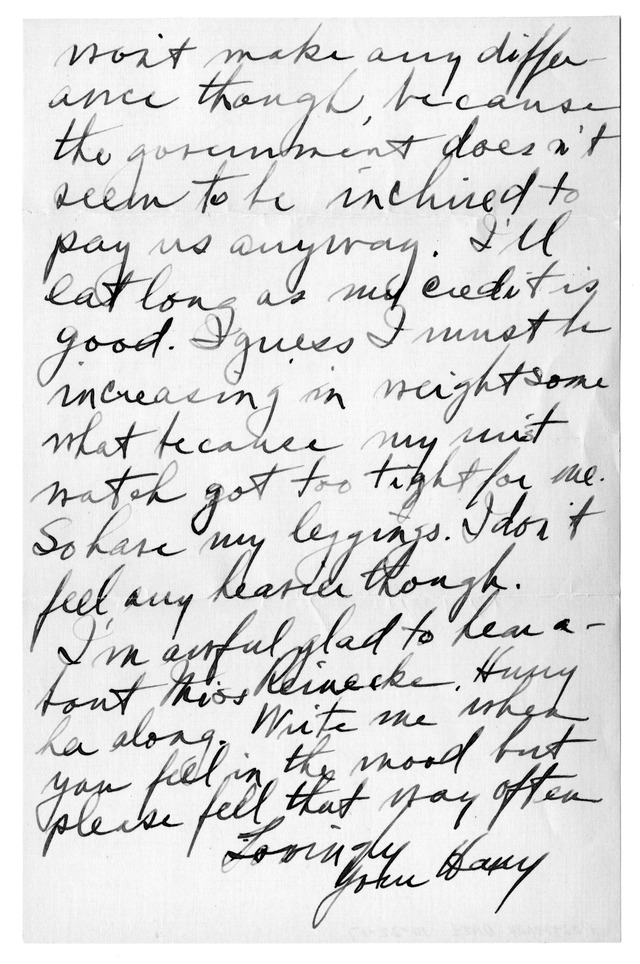 won't make any differ-
ance though, because
the government doesn't
seem to be inclined to
pay us anyway. I'll
eat long as my credit is
good. I guess I must be
increasing in weight some
what because my wrist
watch got too tight for me.
So have my leggings. I don't
feel any heavier though.
I'm awful glad to hear a-
bout Miss Reinecke. Hurry
her along. Write me when
you feel in the mood but
please feel that way often
Lovingly
Your Harry